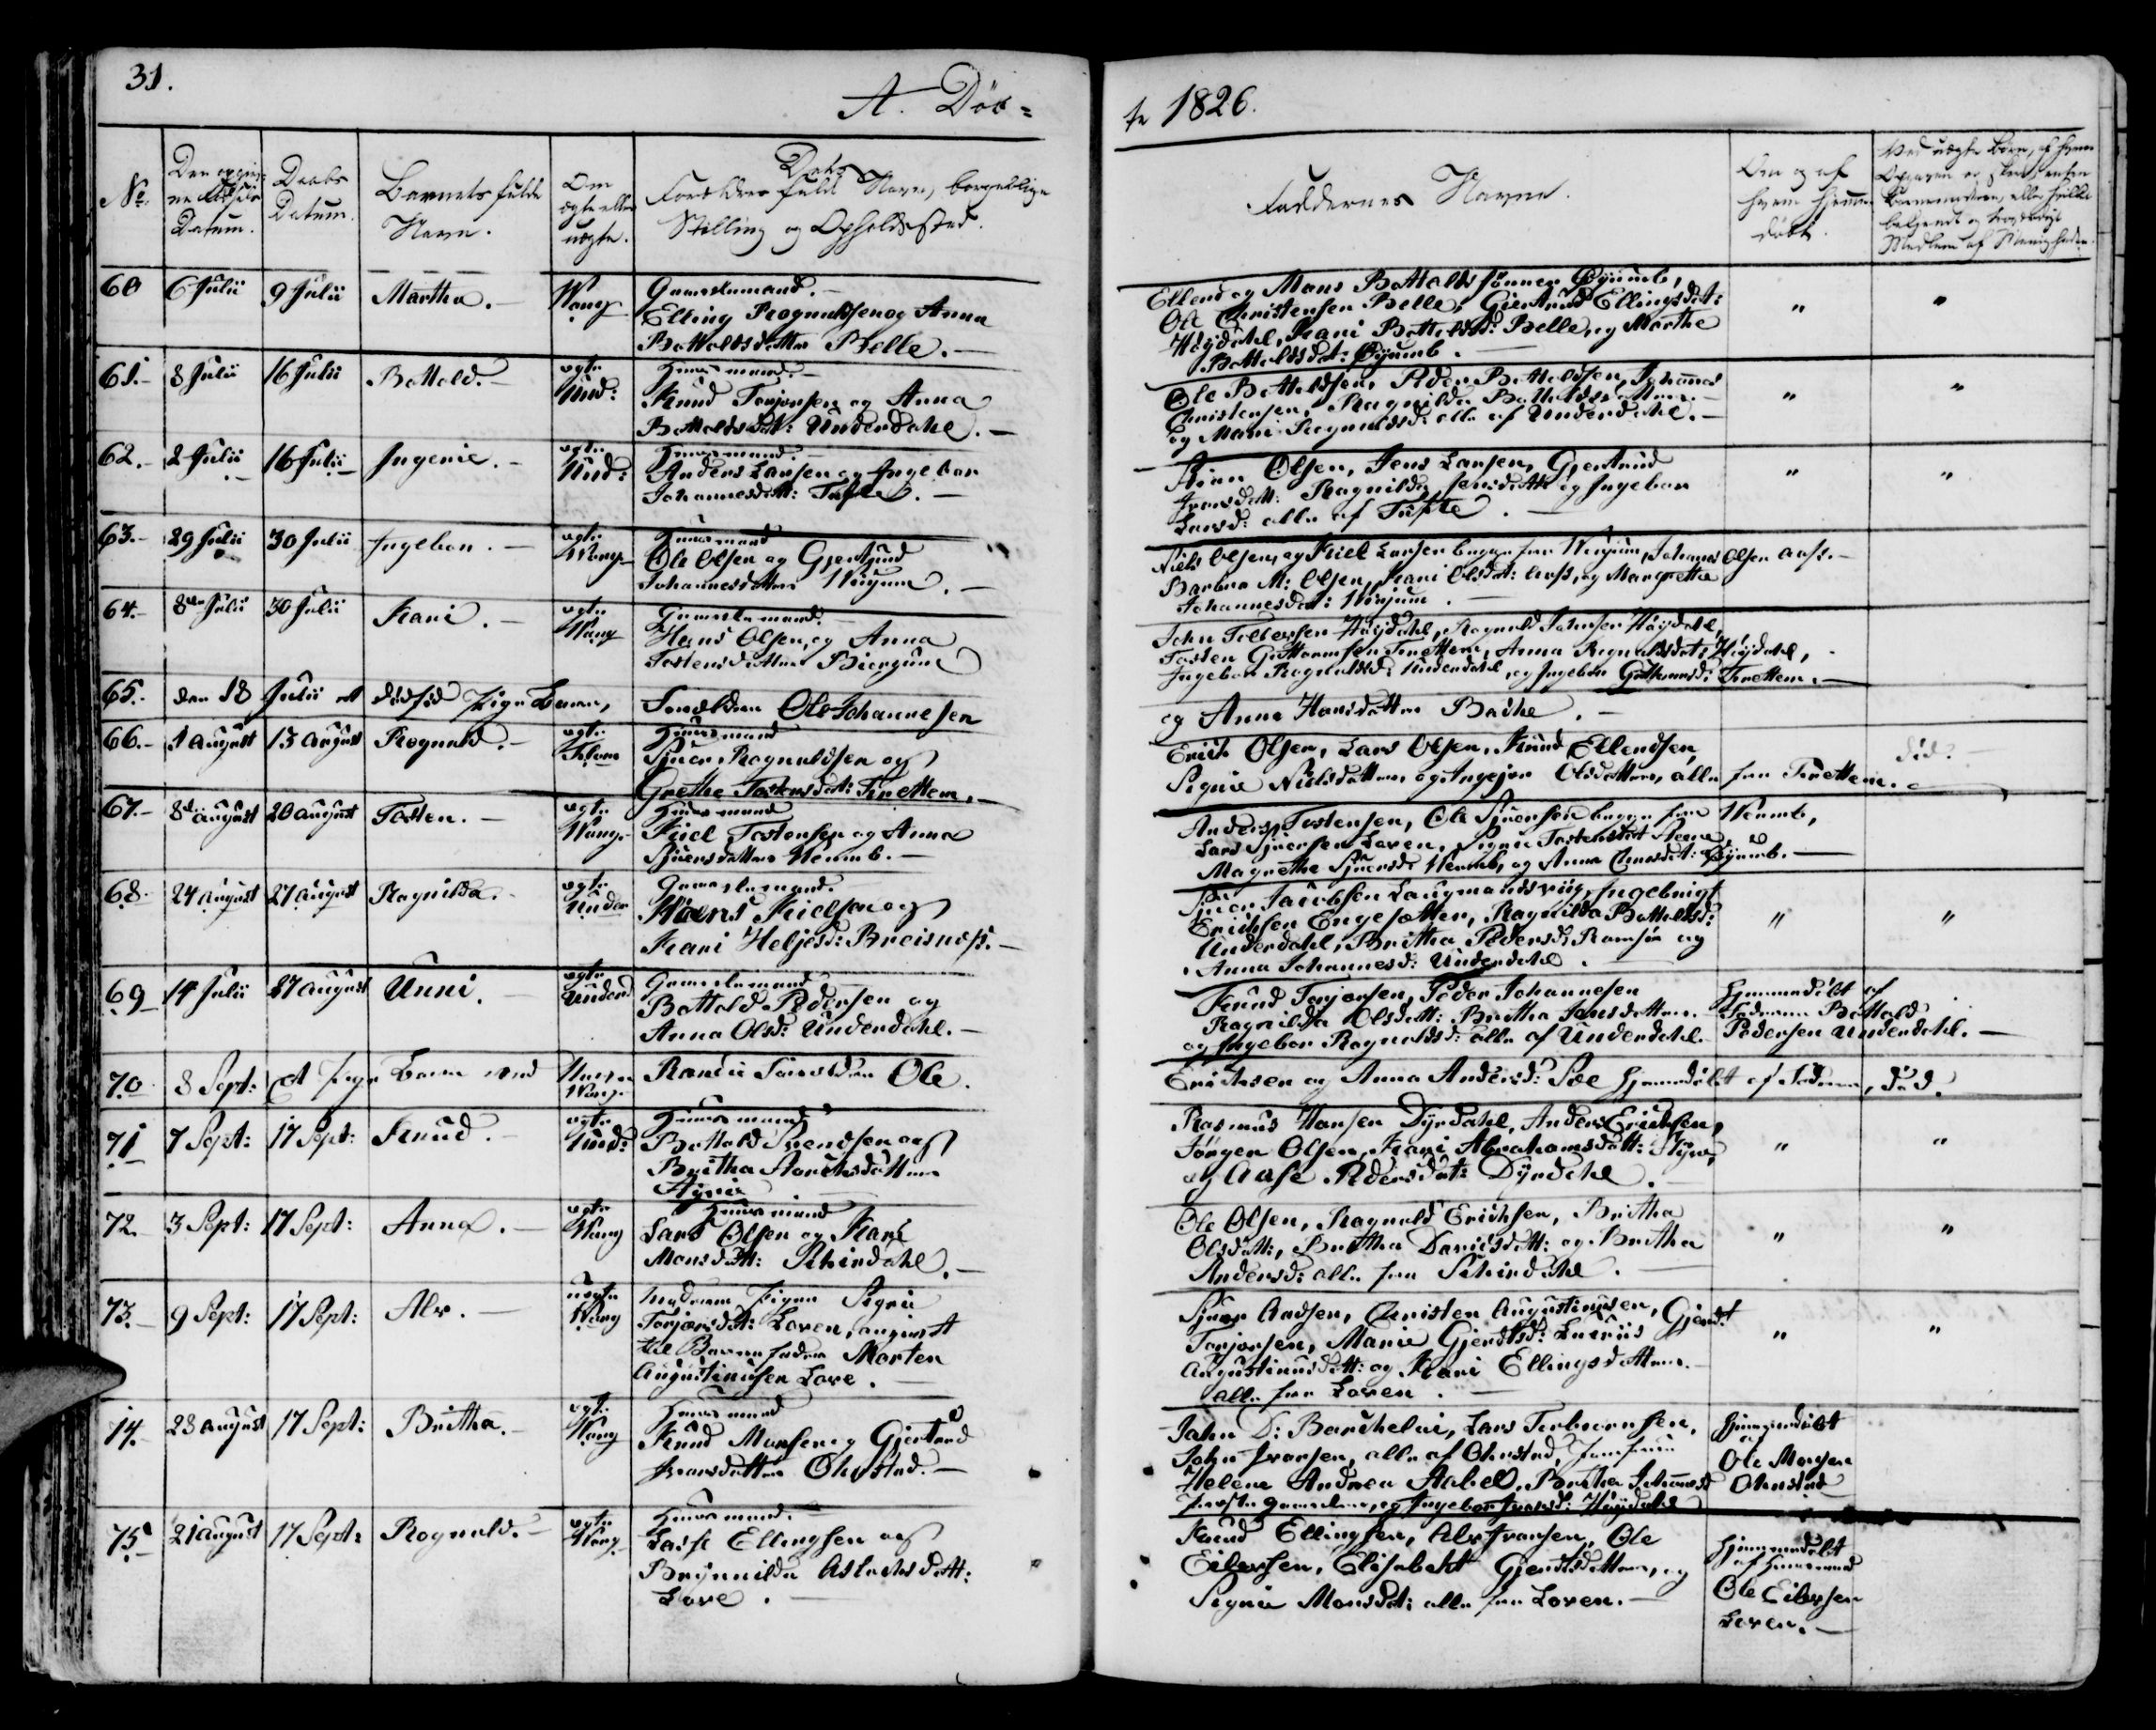 31.
A. Døb=
te 1826.
No.
Den opgivne Fødsels Datum.
Daabs Datum.
Barnets fulde Navn.
Om ægte eller uægte.
Forældres fulde Navn, borgerlige
Stilling og Opholdssted.
Faddernes Navne.
Om og af hvem hjemmedøbt.
60 6 Julii 9 Julii Martha. Wang
Gaardmand.
Elling Rognaldsen og Anna
Bottolvsdatter Belle.
Ellend og Mons Bottolds sønner Øÿumb,
Ole Christensen Belle, Giertrud Ellingsdt:
Høÿdahl, Kari Bottoldsd: Belle, og Marthe
Bottoldsdat: Øÿumb.
61. 8 Julii 16 Julii Bottold. ægte Und:
Huusmand.
Knud Torjersen og Anna
Bottoldsdat: Underdahl.
Ole Bottoldsen, Peder Bottoldsen, Johannes
Christensen, Ragnilda Bottoldsdatter
og Mari Rognaldsd: alle af Underdahl.
62. 2 Julii 16 Julii Ingerie. ægte Und:
Huusmand.
Anders Larsen og Ingebor
Johannesdatt: Tufte.
Olsen, Jens Larsen, Gjertrud
Iversdatt: Ragnilda Jensdatt: og Ingebor
Larsd: alle af Tufte.
63. 29 Julii 30 Julii Ingebor. ægte Wang
Huusmand
Ole Olsen og Gjertrud
Johannesdatter Winjum.
Niels Olsen, og Kiel Larsen begge fra Winjum, Johannes Olsen Aase.
Barbra M: Olsen, Kari Olsdat: Aase, og Margrethe
Johannesdat: Winjum.
64. 8de Julii 30 Julii Kari. ægte Wang
Gaardmand.
Hans Olsen, og Anna
Tostensdatter Biergum
John Tollefsen Høÿdahl, Rognald Johnsen Høÿdahl,
Tosten Guttormsen Frettem, Anna Rognaldsdat: Høÿdahl,
Ingebor Rognaldsd: Underdahl, og Ingebor Guttormsd: Frettem.
65. den 18 Julii et dødfød Pige Barn, Forældre Ole Johannesen
og Anna Hansdatter Bache.
66. 1 August 13 August Rognald. ægte Flom
Huusmand
Siuer Rognaldsen og
Grethe Tostensdat: Frettem.
Erich Olsen, Lars Olsen, Knud Ellendsen,
Signie Nielsdatter, og Ingejer Olsdatter, alle fra Frettem.
67. 8de August 20 August Tosten. ægte Wang
Huusmand
Kiel Tostensen og Anna
Siuersdatter Wemb.
Anders Tostensen, Ole Siuersen begge fra Wemb,
Lars Siuersen Loven, Signie Tostensdat
Magrethe Siuersd: Wemb, og Anna Olmsdat: Øÿumb.
68. 24 August 27 August Ragnilda. ægte Under
Gaardmand.
Kielsen og
Kari Heljesd: Breisnæs.
Siuer Jacobsen Laugmandsriig, Ingebrigt
Erichsen Engesætter, Ragnilda Bottoldsd:
Underdahl, Britha Pedersd: Ramsøe og
Anna Johannesd: Underdahl.
69 14 Julii 27 August Unni. ægte Underd
Gaardmand
Bottold Pedersen og
Anna Olsd: Underdahl.
Knud Torjersen, Peder Johannesen
Ragnilda Olsdatt: Britha Jonsdatter
og Ingebor Rognaldsd: alle af Underdahl.
Hjemmedøbt af
Faderen Bottold
Pedersen Underdahl.
70 8 Sept: et Pige Barn ved Navn Randi Forældre Ole.
Erichsen og Anna Andersd: hjemmedøbt af Faderen, død.
71 7 Sept: 17 Sept: Knud. ægte Und:
Huusmand
Bottold Svendsen og
Britha
Styvi
Rasmus Hansen Dÿrdahl, Anders Erichsen,
Jørgen Olsen, Kari Abrahamsdatt: Styve,
og Aase Pedersdat: Dÿrdahl.
72. 3 Sept: 17 Sept: Anna. ægte Wang
Huusmand
Lars Olsen og Kari
Monsdatt: Schirdahl.
Ole Olsen, Ragnald Erichsen, Britha
Olsdatt:, Britha Davidsdatt: og Britha
Andersd: alle fra Schirdahl.
73. 9 Sept: 17 Sept: Alv. uægte Wang
Moderen Pigen Signie
Torjersdt: Loven, angivet
til Barnefader Morten
Augustinusen Love.
Siuer Andsen, Christen Augustinusen, Gjerdt
Torjersen, Marie Gjerdtsd:
Augustinusdatt: og Kari Ellingsdatter.
alle fra Loven.
74. 28 August 17 Sept: Britha. ægte Wang
Huusmand
Knud Monsen og Giertrud
Iversdatter Ohnstad.
John D: Barthelui, Lars Torbiørnsen,
John Iversen, alle af Ohnstad, Jomfrue
Helene Andrea Aabel, Britha Johannesd
og Ingebor Iversd: Høÿdahl
Hjemmedøbt
af
Ole Monsen
Ohnstad
75. 21 August 17 Sept: Rognald. ægte Wang
Huusmand.
Lasse Ellingsen og
Brÿnnilda Aslachsdatt:
Love.
Knud Ellingsen, Alv Iversen, Ole
Eilersen, Elisabeht Gjerdtsdatter, og
Signie Monsdat: alle fra Loven.
Hjemmedøbt
af Huusmand
Ole Eilersen
Loven.